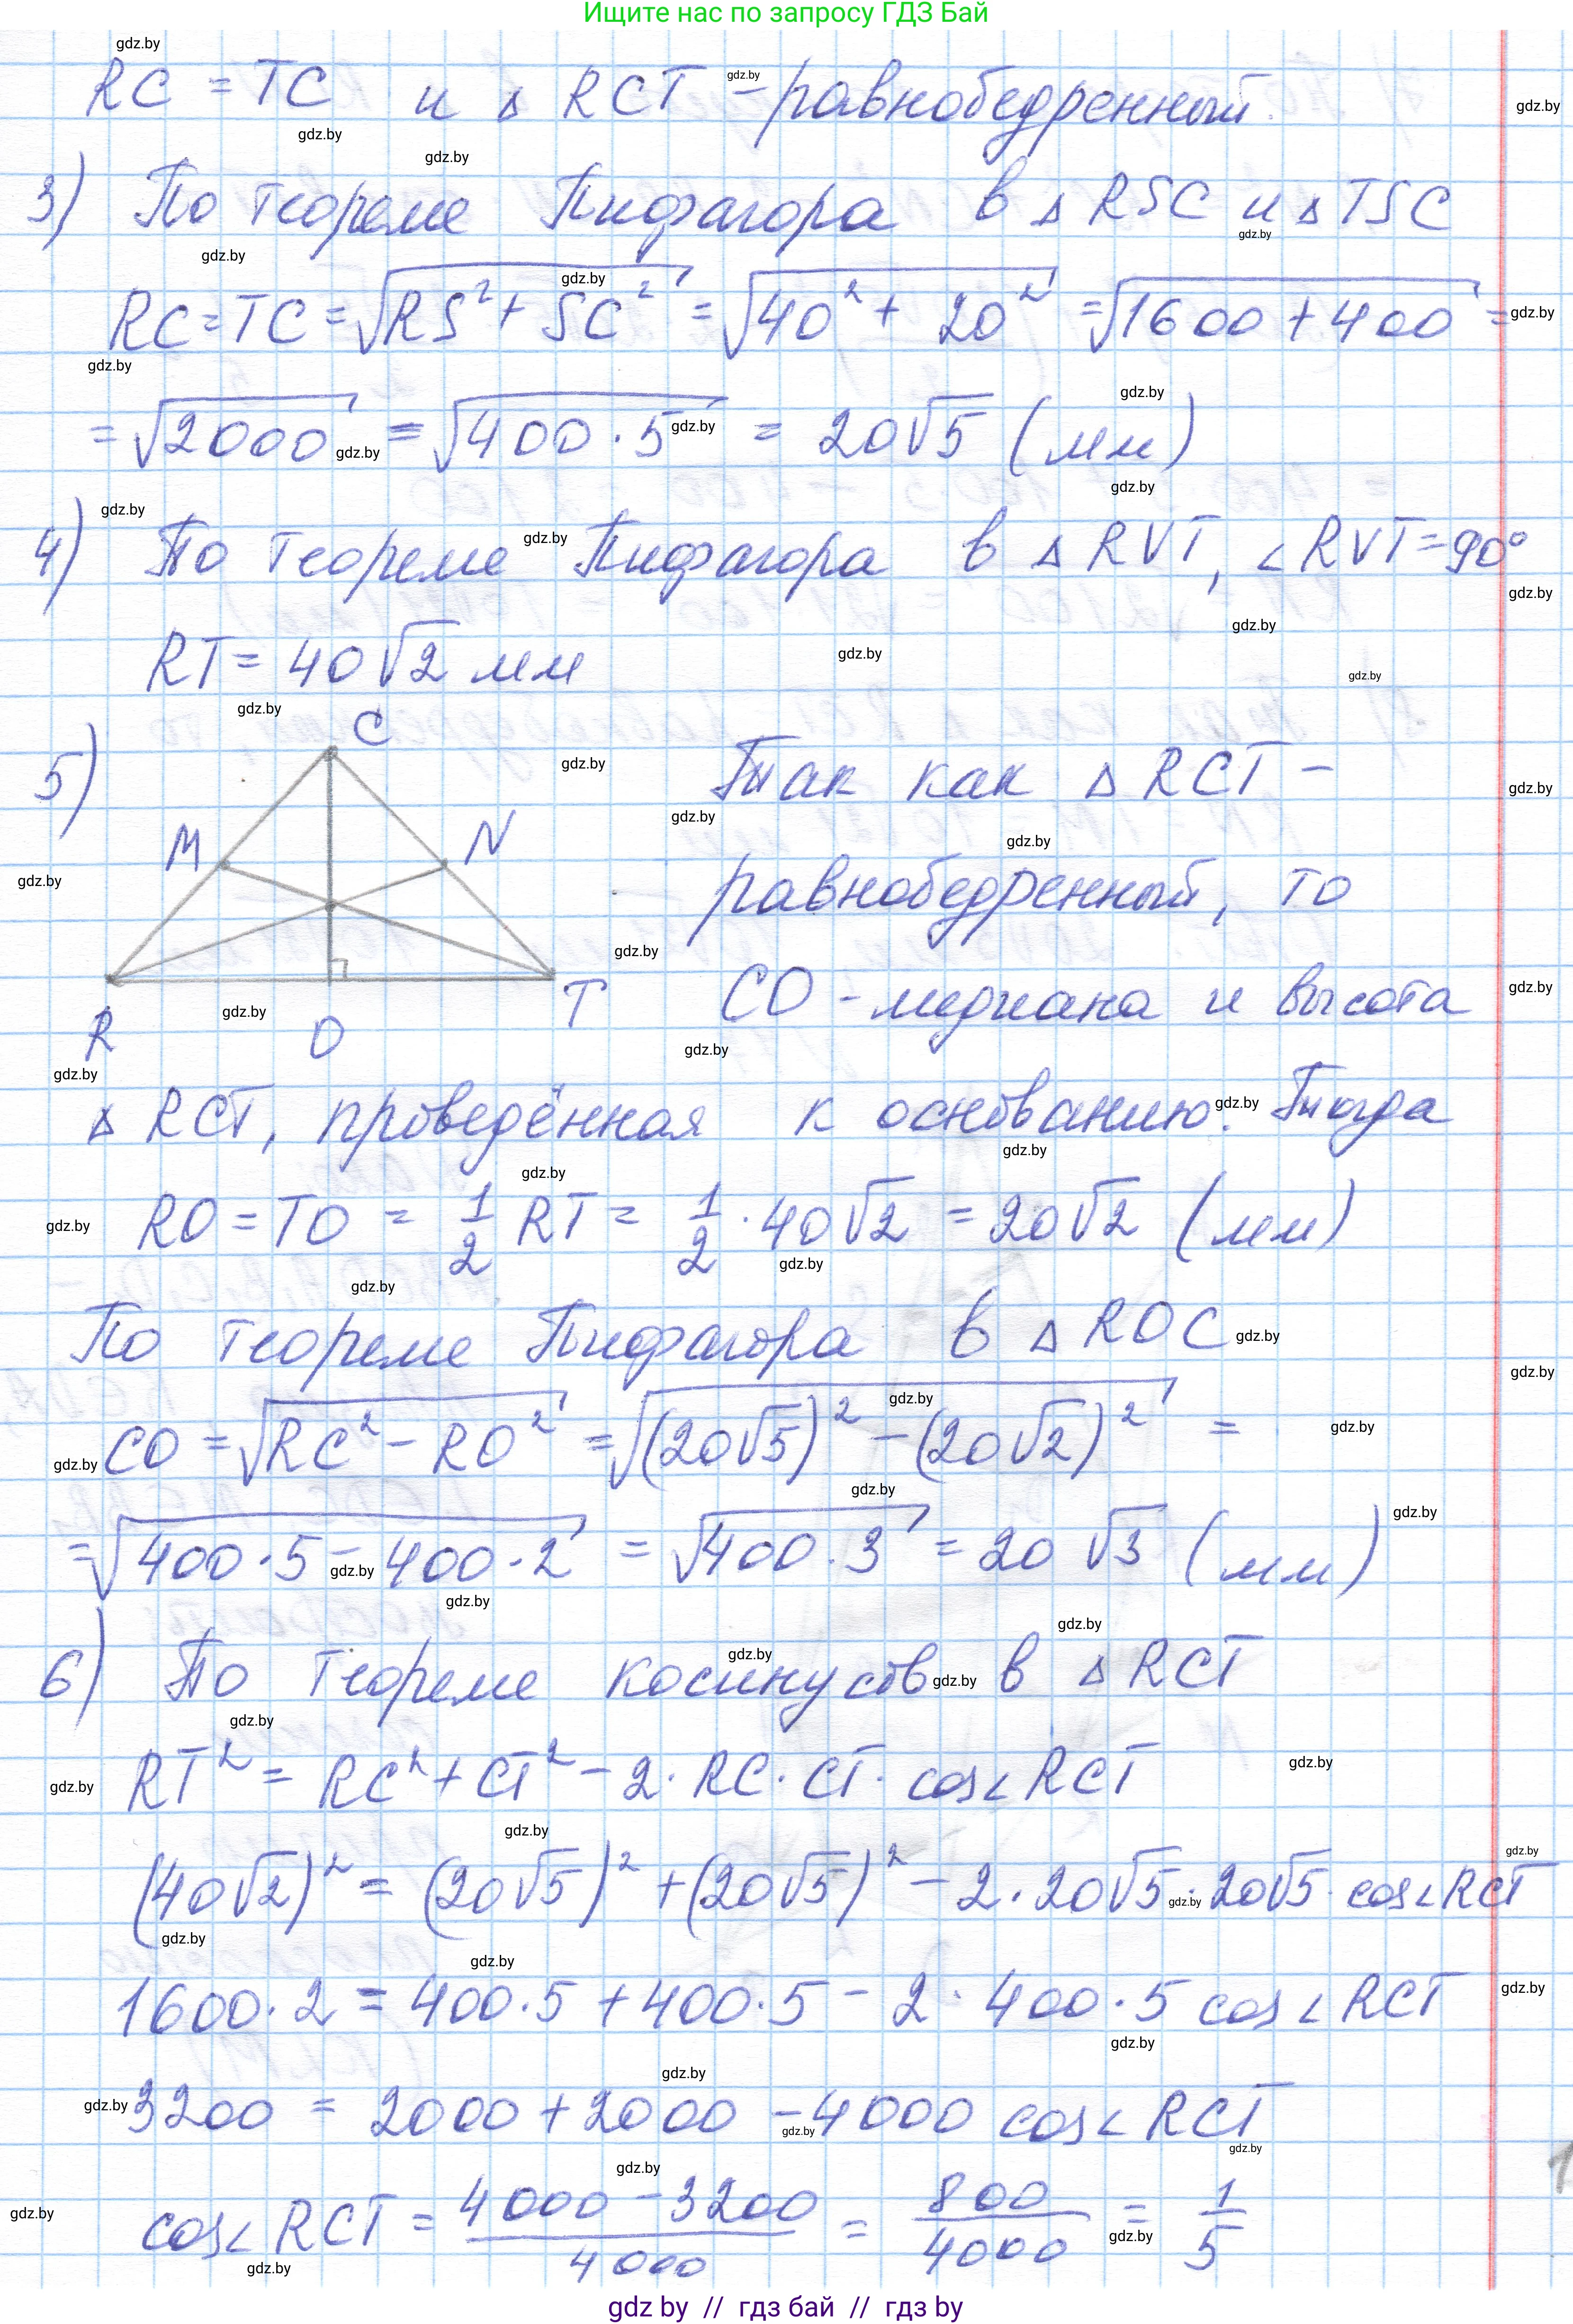 Ищите нас по запросу ГДЗ Бай
RC = TC и △ RCT - равнобедренный.
3) По теореме Пифагора в △ RSC и △ TSC
RC = TC = √(RS² + SC²) = √(40² + 20²) = √(1600 + 400) =
= √2000 = √(400 · 5) = 20√5 (мм)
4) По теореме Пифагора в △ RVT, ∠RVT = 90°
RT = 40√2 мм
5) Так как △ RCT -
равнобедренный, то
CO - медиана и высота
C
M
N
R
O
T
△ RCT, проведённая к основанию. Тогда
RO = TO = 1/2 RT = 1/2 · 40√2 = 20√2 (мм)
По теореме Пифагора в △ ROC
CO = √(RC² - RO²) = √((20√5)² - (20√2)²) =
= √(400 · 5 - 400 · 2) = √(400 · 3) = 20√3 (мм)
6) По теореме косинусов в △ RCT
RT² = RC² + CT² - 2 · RC · CT · cos∠RCT
(40√2)² = (20√5)² + (20√5)² - 2 · 20√5 · 20√5 · cos∠RCT
1600 · 2 = 400 · 5 + 400 · 5 - 2 · 400 · 5 cos∠RCT
3200 = 2000 + 2000 - 4000 cos∠RCT
cos∠RCT = (4000 - 3200)/4000 = 800/4000 = 1/5
gdz by // гдз бай // гдз by